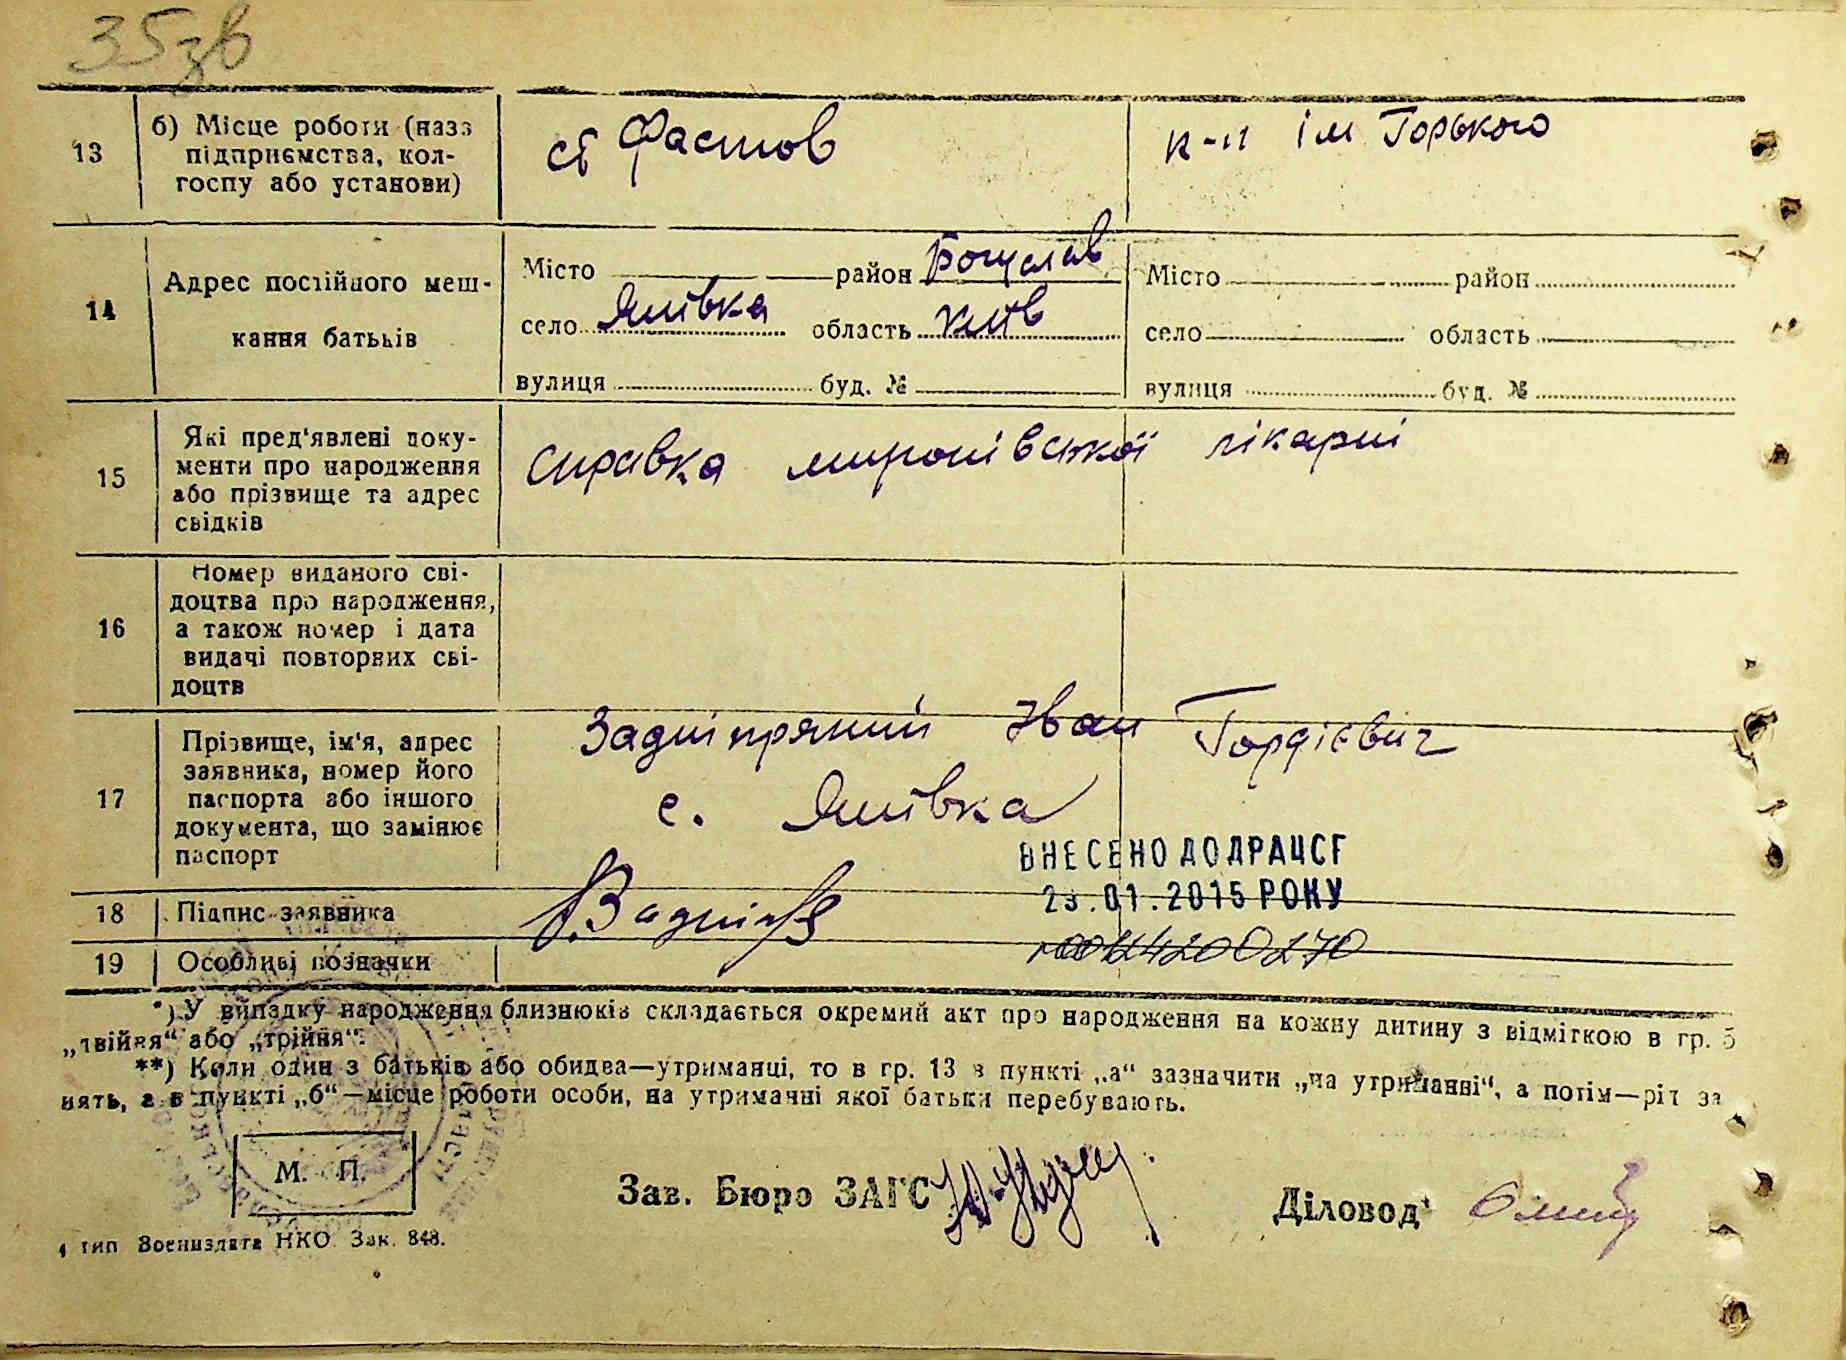 35зв
13
б) Місце роботи (назв
підприємства, кол-
госпу або установи)
ст Фастов
к-п ім Горького
14
Адрес постійного меш-
кання батьків
Місто район Богуслав
село Яхівка область Київ
вулиця буд. №
Місто район
село область
вулиця буд. №
15
Які пред'явлені доку-
менти про народження
або прізвище та адрес
свідків
Справка миронівської лікарні
16
Номер виданого сві-
доцтва про народження,
а також номер і дата
видачі повторних сві-
доцтв
17
Прізвище, ім'я, адрес
заявника, номер його
паспорта або іншого
документа, що замінює
паспорт
Задніпряний Іван Гордієвич
с.
ВНЕСЕНО ДО ДРАЦСГ
23.01.2015 РОКУ
18 Підпис заявника
00124200270
19 Особливі позначки
*) У випадку народження близнюків складається окремий акт про народження на кожну дитину з відміткою в гр. 5
„двійня“ або „трійня“.
**) Коли один з батьків або обидва—утриманці, то в гр. 13 в пункті „а“ зазначити „на утриманні“, а потім—рід за
нять, а в пункті „б“—місце роботи особи, на утриманні якої батьки перебувають.
М. П.
Зав. Бюро ЗАГС
Діловод
4 тип Воениздата НКО Зак. 848.